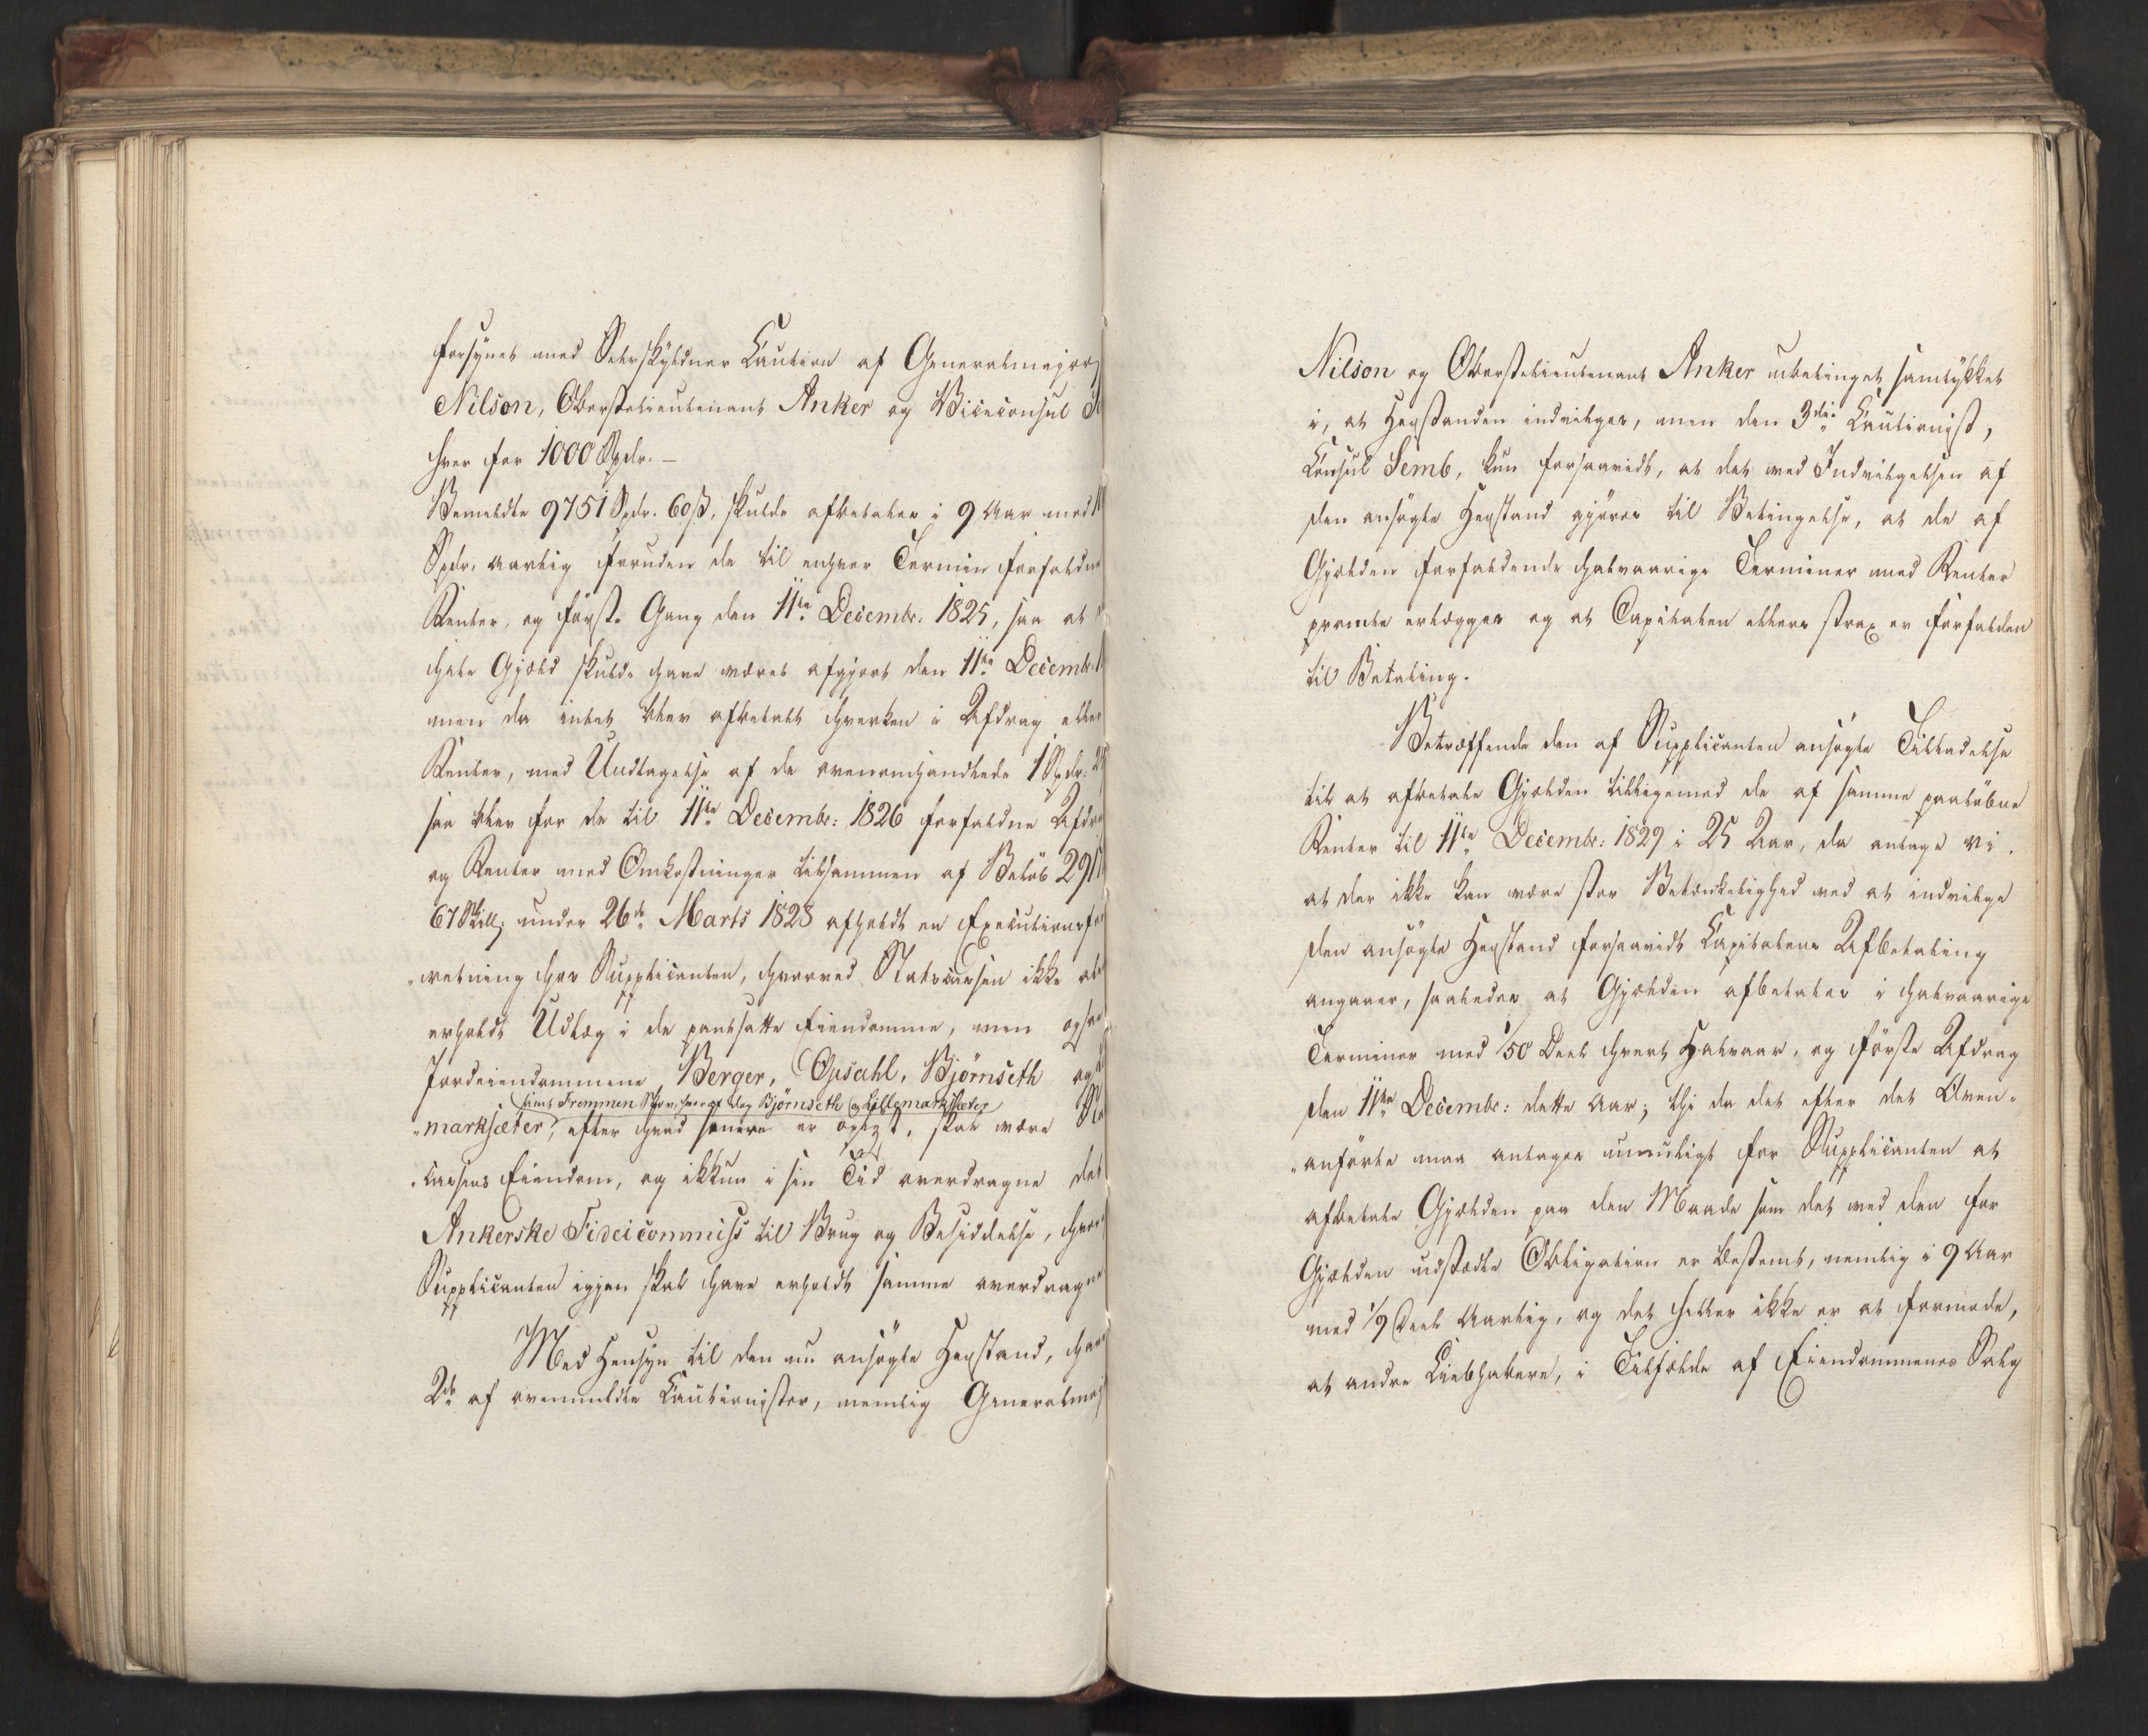 forsynet med Selvskyldner Caution af Generalmajor
Nilson, Oberstelieutenant Anker og Viceconsul S
hver for 1000 Spdr. –
Bemeldte 9751 Spdr. 60 ß. skulde afbetales i 9 Aar med
Spdr. aarlig foruden de til enhver Termin forfaldne
Renter, og første Gang den 11te Decembr: 1825, saa at
hele Gjæld skulde have været afgjort den 11te Decembr:
men da intet blev afbetalt hverken i Afdrag eller
Renter, med Undtagelse af de ovenomhandlede 1 Spdr:
saa blev for de til 11te Decembr: 1826 forfaldne Afdra
og Renter med Omkostninger tilsammen af Beløb 291
67 Skill; under 26de Marts 1828 afholdt en Executionsfor
„retning hos Supplicanten, hvorved Statscassen ikke ale
erholdt Udlæg i de pantsatte Eiendomme, men ogsaa
Jordeiendommene, Berger, Opsahl, Bjørnseth og
samt Fremmen Skov, hvoraf dog Bjørnseth og Lillemarksæter
„marksæter, efter hvad senere er oplyst, skal være Sta
„cassens Eiendom, og ikkun i sin Tid overdragne det
Ankerske Fideicommiss til Brug og Besiddelse, hvor
Supplicanten igjen skal have erholdt samme overdragne
Med Hensyn til den nu ansøgte Henstand, har
2de af ovenmeldte Cautionister, nemlig Generalmaj
Nilson og Oberstelieutenant Anker ubetinget samtykket
i, at Henstanden indvilges, men den 3die Cautionist,
Consul Semb, kun forsaavidt, at det ved Indvilgelsen af
den ansøgte Henstand gjøres til Betingelse, at de af
Gjælden forfaldende halvaarige Terminer med Renter
promte erlægges og at Capitalen ellers strax er forfalden
til Betaling.
Betræffende den af Supplicanten ansøgte Tilladelse
til at afbetale Gjælden tilligemed de af samme paaløbne
Renter til 11te Decembr: 1829 i 25 Aar, da antage vi.
at der ikke kan være stor Betænkelighed ved at indvilge
den ansøgte Henstand forsaavidt Capitalens Afbetaling
angaaer, saaledes at Gjælden afbetales i halvaarige
Terminer med 1/50 Deel hvert Halvaar, og første Afdrag
den 11te Decembr: dette Aar; thi da det efter det Oven„
„anførte maa antages umuligt for Supplicanten at
afbetale Gjælden paa den Maade som det ved den for
Gjælden udstædte Obligation er bestemt, nemlig i 9 Aar
med 1/9 Deel Aarlig, og det heller ikke er at formode,
at andre Liebhabere, i Tilfælde af Eiendommenes Salg